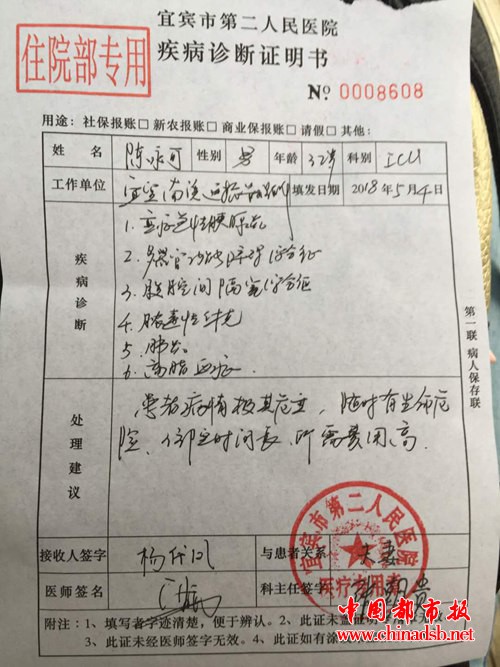 宜宾市第二人民医院
住院部专用
疾病诊断证明书
No. 0008608
用途：社保报账□ 新农报账□ 商业保报账□ 请假□ 其他：
姓名 陈永可 性别 男 年龄 32岁 科别 ICU
工作单位 填发日期 2018年5月4日
疾病诊断
1. 重症急性胰腺炎
2. 多器官功能障碍综合征
3. 腹腔间隔室综合征
4. 脓毒性休克
5. 肺炎
6. 高脂血症
处理建议
患者病情极其危重，随时有生命危
院，住院时间长，所需费用高.
第一联 病人保存联
接收人签字 杨 与患者关系 夫妻
医师签名 科主任签字
宜宾市第二人民医院
医疗专用章
附注：1、填写者字迹清楚，便于辨认。2、此证未盖证明
3、此证未经医师签字无效。4、此证如有涂
中国都市报
www.chinadsb.net